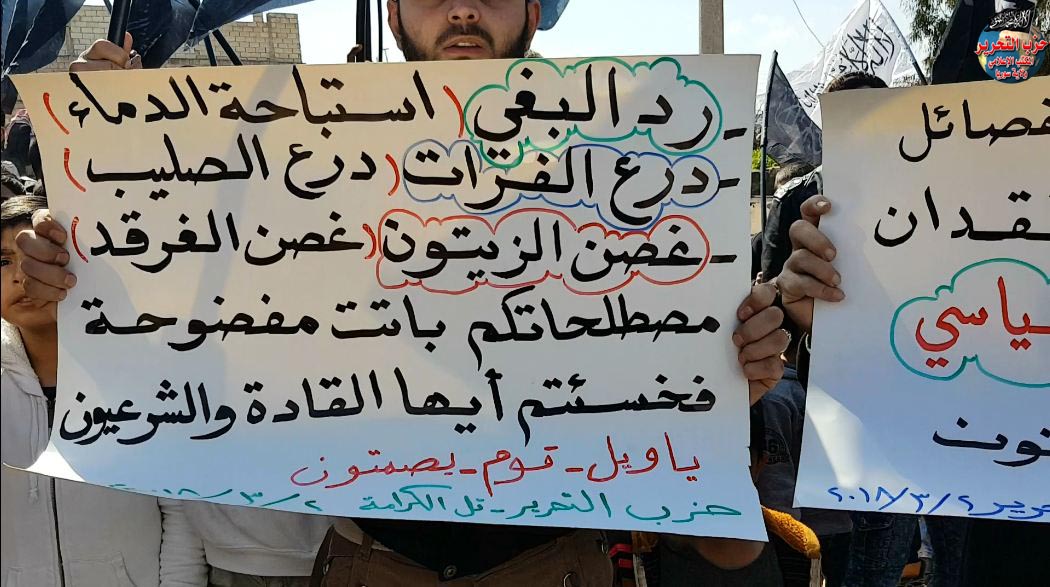 - رد البغي (استباحة الدماء)
- درع الفرات (درع الصليب)
- غصن الزيتون (غصن الغرقد)
مصطلحاتكم باتت مفضوحة
فخسئتم أيها القادة والشرعيون
ياويل - قوم - يصمتون
حزب التحرير - تل الكرامة ٢/٣/٢٠١٨
فصائل
ـقدان
ـياسي
ـنون
ـرير ٢/٣/٢٠١٨
حزب التحرير
المكتب الإعلامي
ولاية سوريا